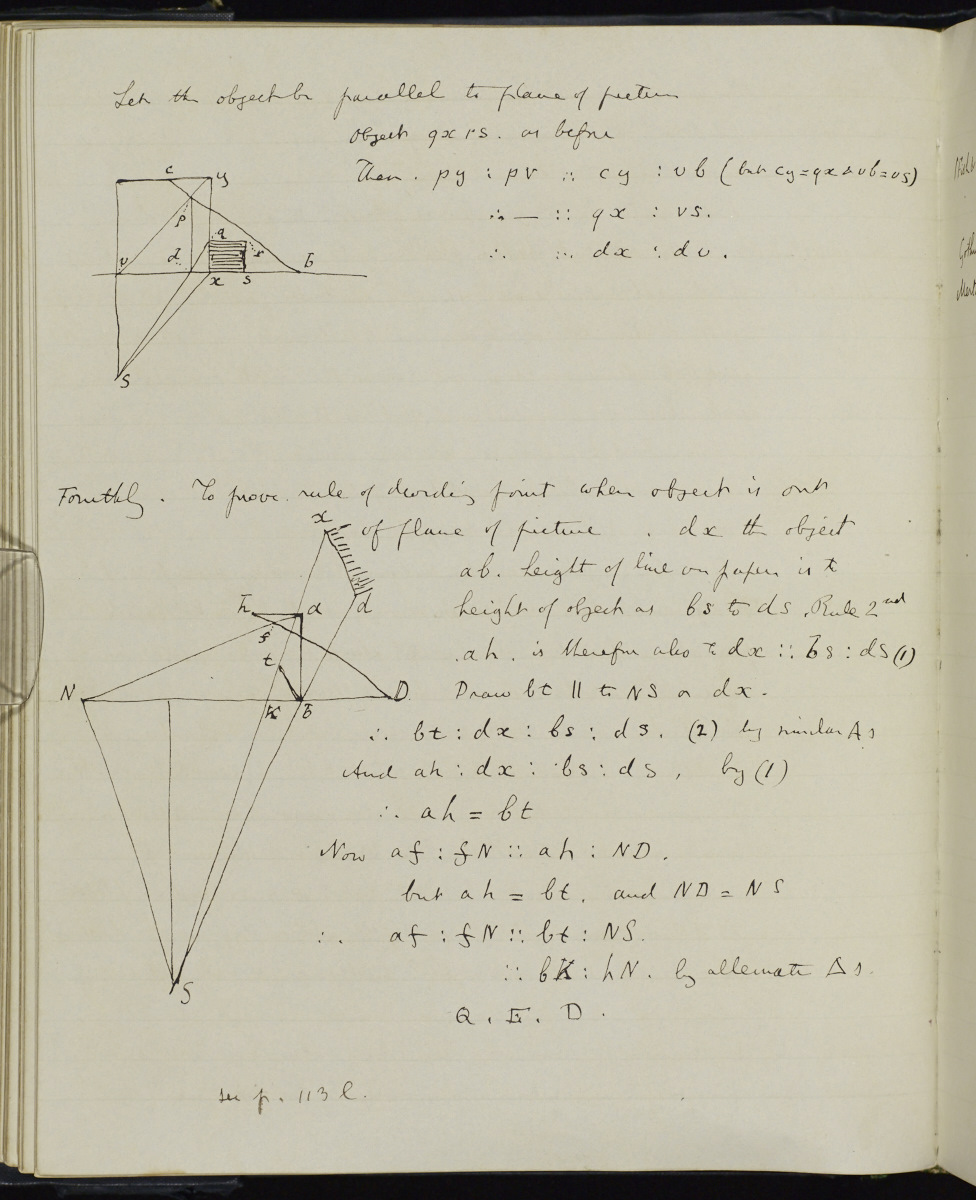 Let the object be parallel to plane of picture
Object qxrs. as before
Then. py : pv :: cy : vb (but cy=qx & vb=vs)
∴ — :: qx : vs.
∴ :: dx : dv.
c y
p
q
v d r b
x s
S
Fourthly. To prove rule of dividing point when object is out
of plane of picture. dx the object
ab. height of line on paper is to
height of object as bs to ds, Rule 2nd
ah. is therefore also to dx :: bs : ds (1)
Draw bt || to NS or dx.
∴ bt : dx : bs : ds. (2) by similar Δs
And ah : dx : bs : ds, by (1)
∴ ah = bt
Now af : fN :: ah : ND.
but ah = bt. and ND = NS
∴ af : fN :: bt : NS.
:: bK : hN. by alternate Δs.
Q. E. D.
x
d
h a
f
t
N K b D
S
see p. 113 l.